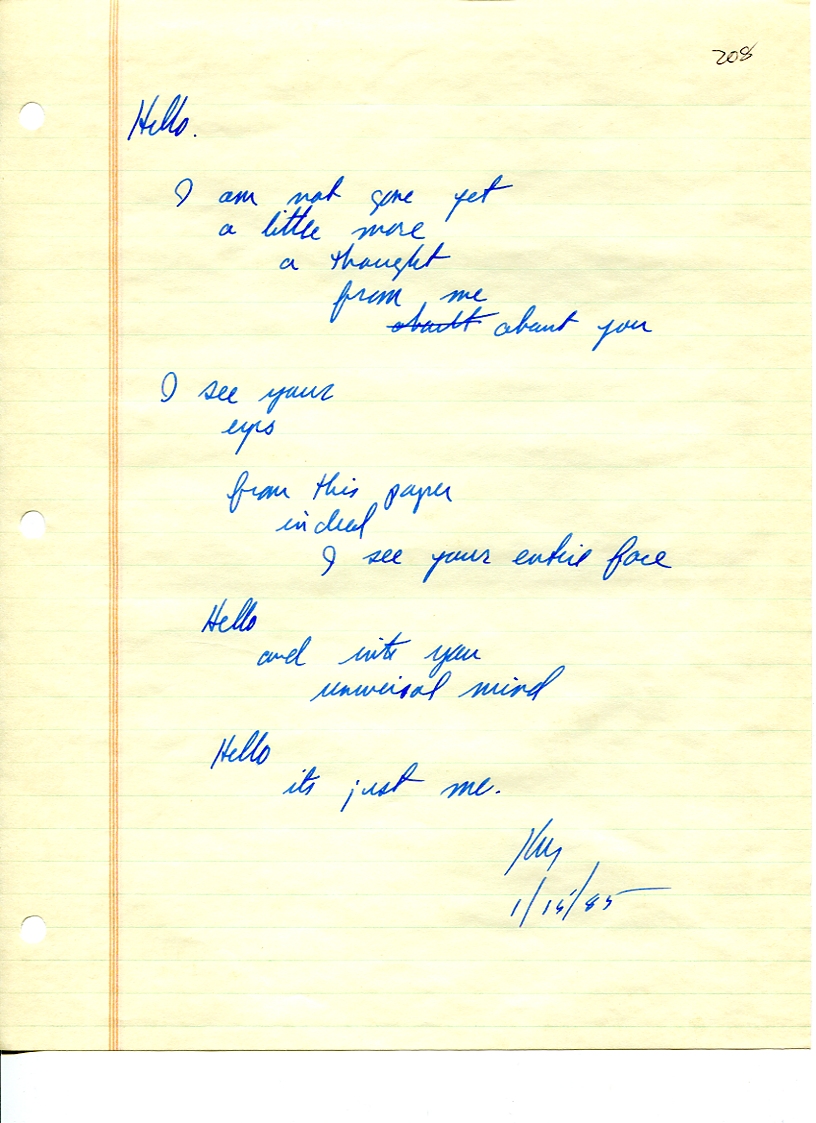 208
Hello.
I am not gone yet
a little more
a thought
from me
about you
I see your
eyes
from this paper
indeed
I see your entire face
Hello
and into your
universal mind
Hello
its just me.
1/15/85